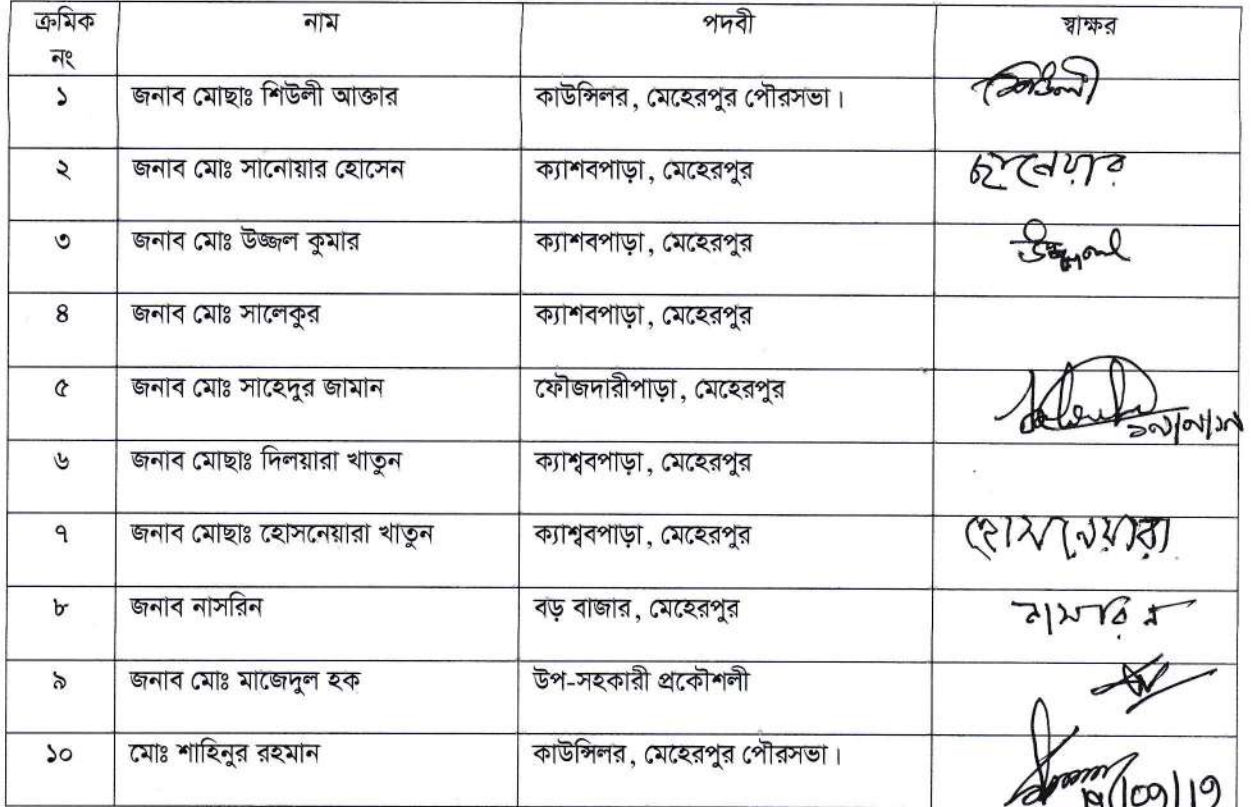 ক্রমিক নং নাম পদবী স্বাক্ষর
১ জনাব মোছাঃ শিউলী আক্তার কাউন্সিলর, মেহেরপুর পৌরসভা। শিউলী
২ জনাব মোঃ সানোয়ার হোসেন ক্যাশবপাড়া, মেহেরপুর ছানোয়ার
৩ জনাব মোঃ উজ্জল কুমার ক্যাশবপাড়া, মেহেরপুর উজ্জ্বল
৪ জনাব মোঃ সালেকুর ক্যাশবপাড়া, মেহেরপুর
৫ জনাব মোঃ সাহেদুর জামান ফৌজদারীপাড়া, মেহেরপুর
৬ জনাব মোছাঃ দিলয়ারা খাতুন ক্যাশ্ববপাড়া, মেহেরপুর
৭ জনাব মোছাঃ হোসনেয়ারা খাতুন ক্যাশ্ববপাড়া, মেহেরপুর হোসনেয়ারা
৮ জনাব নাসরিন বড় বাজার, মেহেরপুর নাসরিন
৯ জনাব মোঃ মাজেদুল হক উপ-সহকারী প্রকৌশলী
১০ মোঃ শাহিনুর রহমান কাউন্সিলর, মেহেরপুর পৌরসভা।